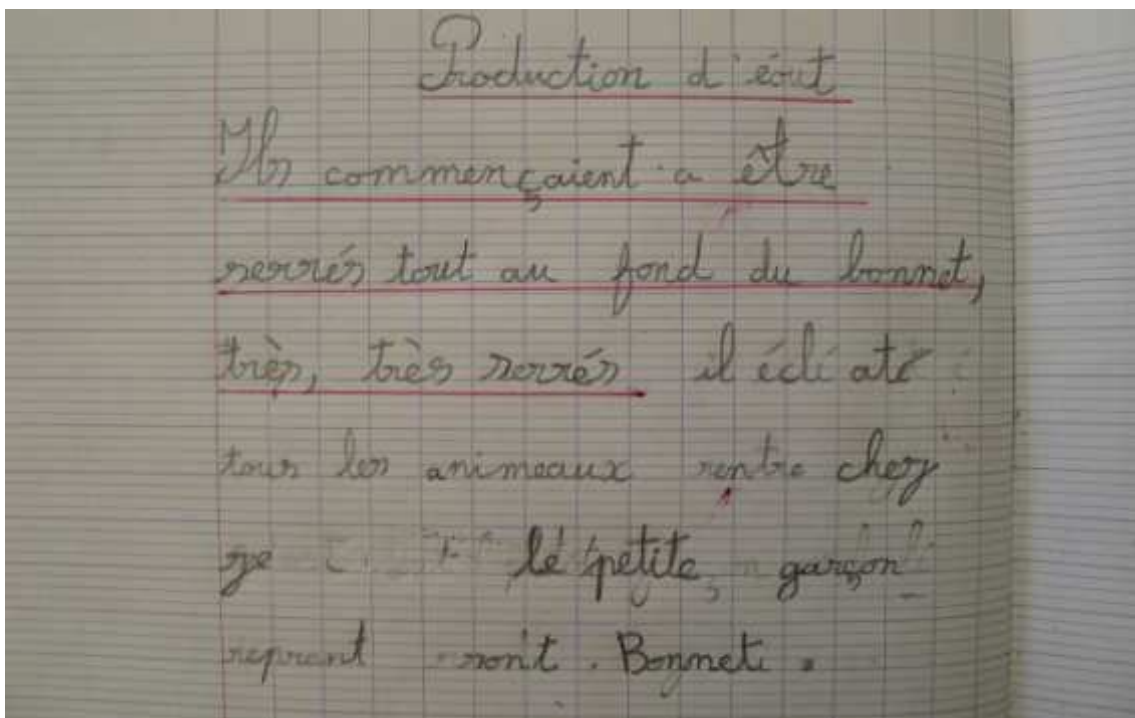 Production d'écrit
Ils commençaient a être
serrés tout au fond du bonnet,
très, très serrés il écli até
tous les animeaux rentre chez
ze lé petite garçon
reprent sont. Bonnet.